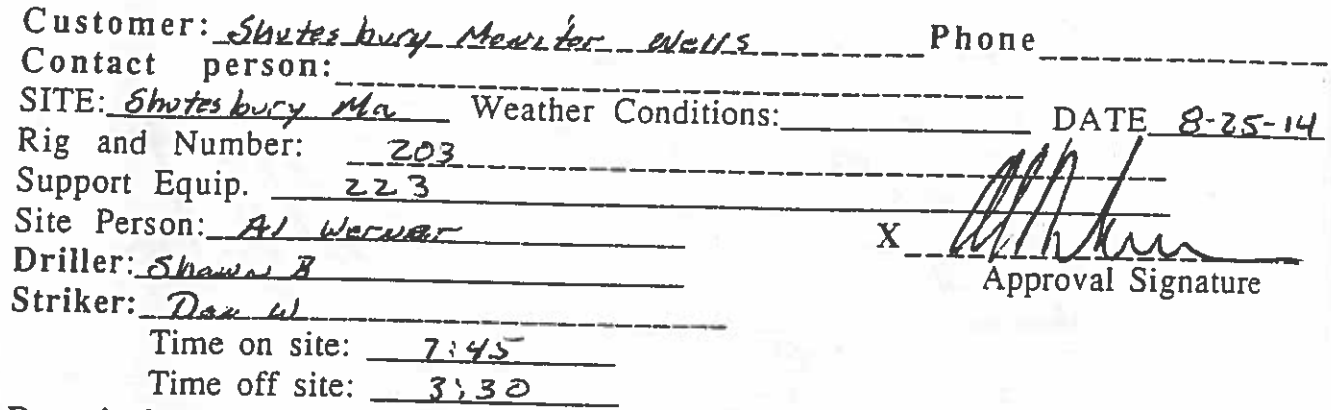 Customer: Shutesbury Moniter Wells Phone
Contact person:
SITE: Shutesbury Ma Weather Conditions: DATE 8-25-14
Rig and Number: 203
Support Equip. 223
Site Person: Al Werner X
Driller: Shawn B Approval Signature
Striker: Dan W
Time on site: 7:45
Time off site: 3:30